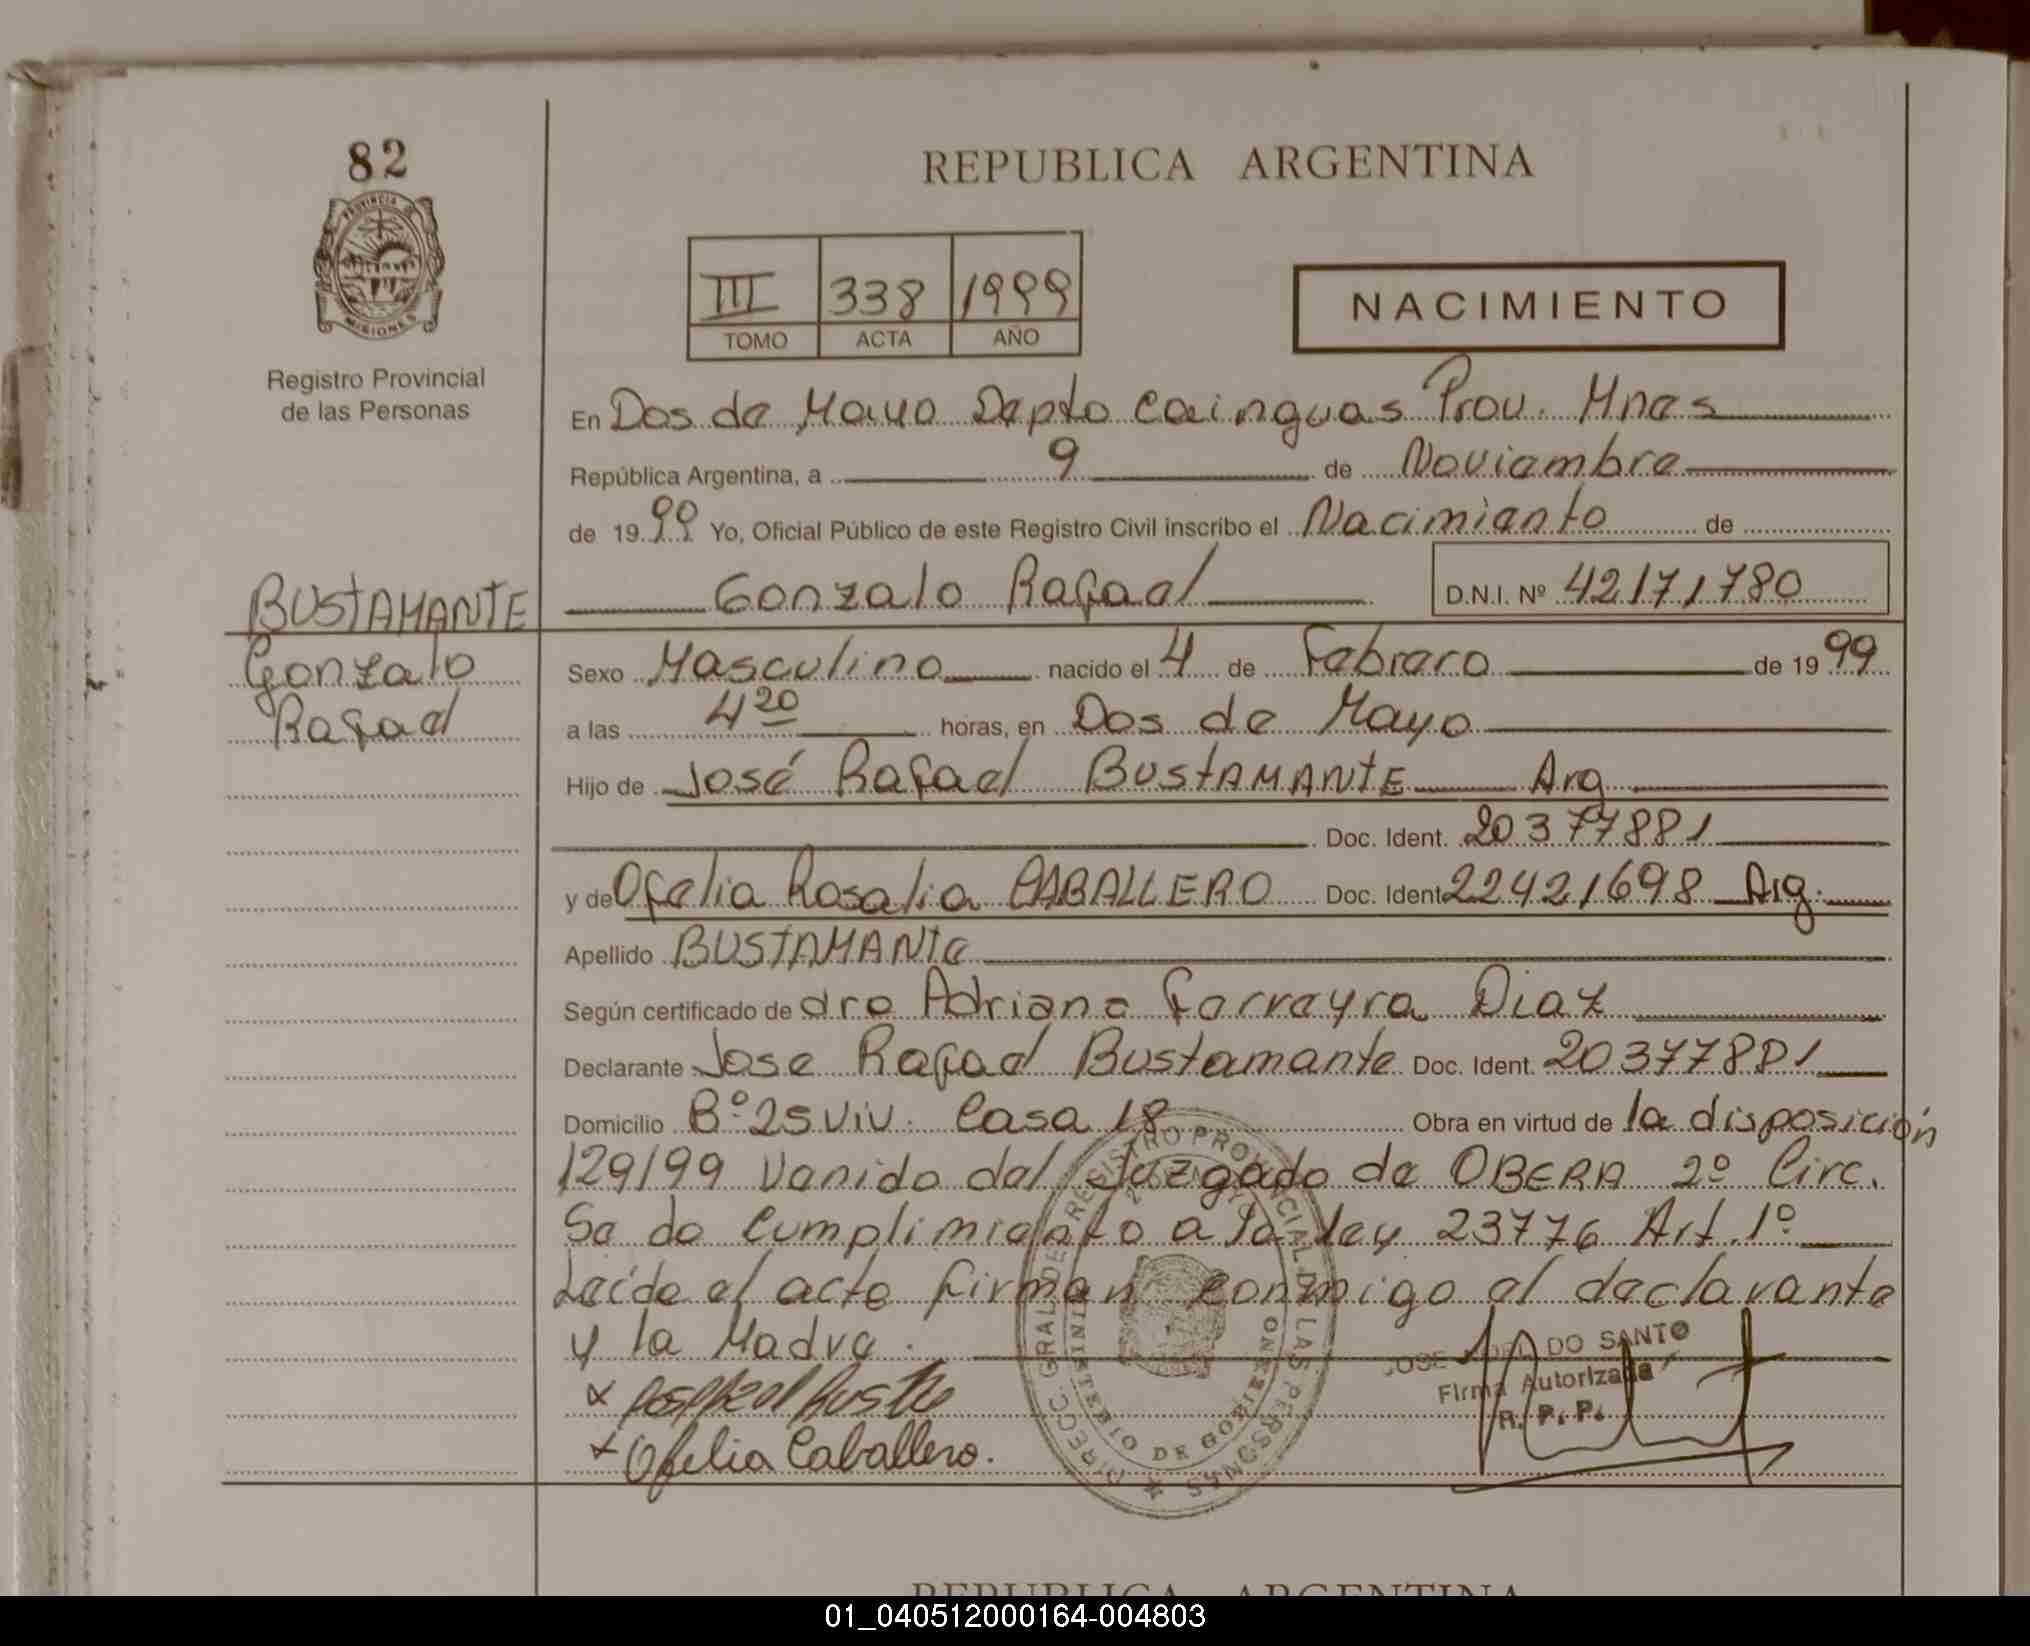 82
PROVINCIA DE
MISIONES
Registro Provincial
de las Personas
REPUBLICA ARGENTINA
III 338 1999
TOMO ACTA AÑO
NACIMIENTO
En Dos de Mayo Depto Cainguas Prov. Mnes
República Argentina, a 9 de Noviembre
de 1999 Yo, Oficial Público de este Registro Civil inscribo el Nacimiento de
BUSTAMANTE
Gonzalo
Rafael
Gonzalo Rafael D.N.I. Nº 42171780
Sexo Masculino nacido el 4 de Febrero de 1999
a las 4 20 horas, en Dos de Mayo
Hijo de José Rafael BUSTAMANTE Arg
Doc. Ident. 20377881
y de Ofelia Rosalia CABALLERO Doc. Ident 22421698 Arg.
Apellido BUSTAMANTe
Según certificado de dra Adriana Ferreyra Diaz
Declarante Jose Rafael Bustamante Doc. Ident. 20377881
Domicilio Bº 25 viv. Casa 18 Obra en virtud de la disposición
129/99 Venido del Juzgado de OBERA 2º Circ.
Se da Cumplimiento a la ley 23776 Art. 1º
Leída el acta firman conmigo el declarante
y la Madre.
x
x Ofelia Caballero.
DIRECC. GRAL. DE REGISTRO PROVINCIAL DE LAS PERSONAS
MINISTERIO DE GOBIERNO
JOSE DO SANTO
Firma Autorizada
R. P. P.
REPUBLICA ARGENTINA
01_040512000164-004803